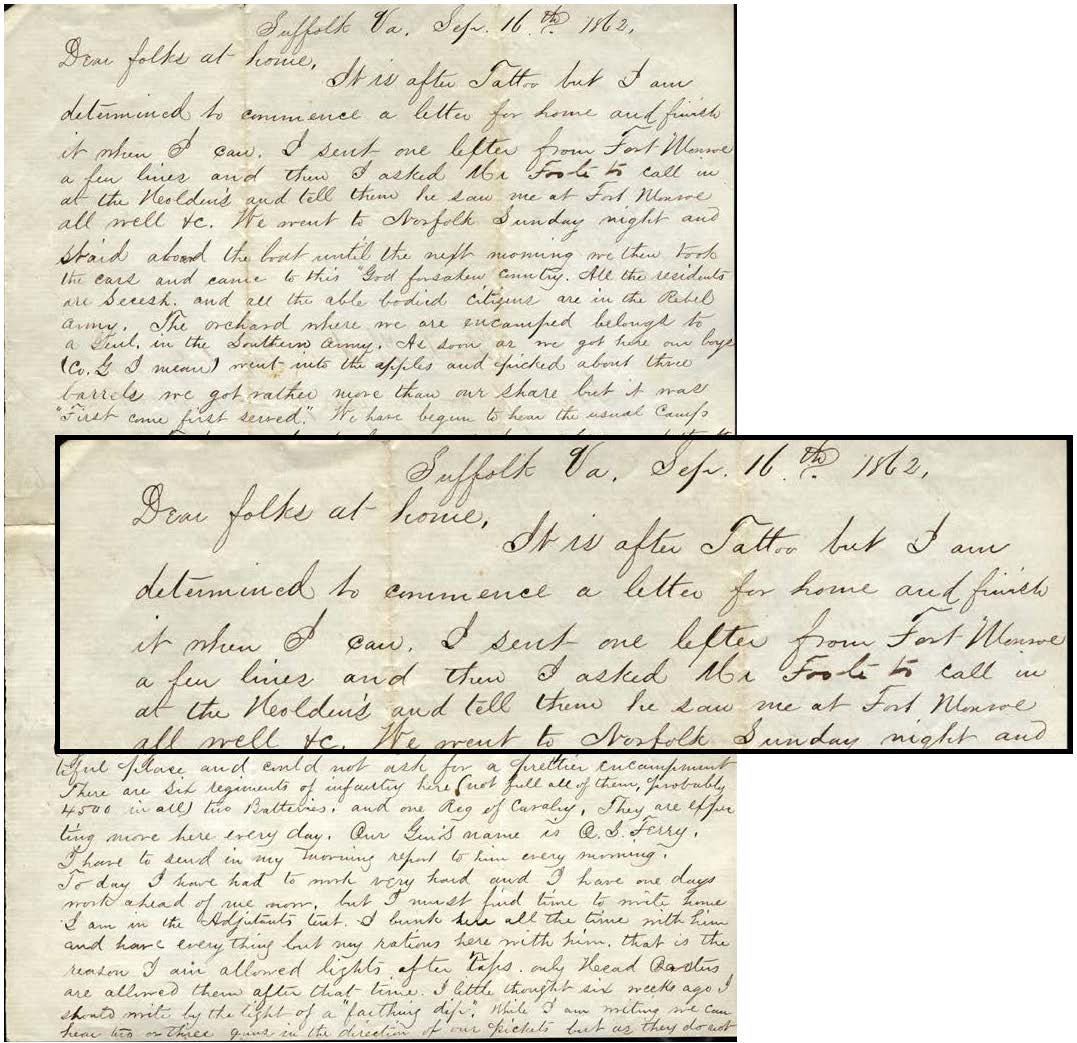 Suffolk Va, Sep. 16th. 1862,
Dear folks at home,
It is after Tattoo but I am
determined to commence a letter for home and finish
it when I can. I sent one letter from Fort Monroe
a few lines and then I asked Mr Foote to call in
at the Holden's and tell them he saw me at Fort Monroe
all well &c. We went to Norfolk Sunday night and
staid aboard the boat until the next morning we then took
the cars and came to this "God forsaken country. All the residents
are Secesh. and all the able bodied citizens are in the Rebel
army. The orchard where we are encamped belongs to
a Genl. in the Southern Army. As soon as we got here our boys
(Co. G I mean) went into the apples and picked about three
barrels we got rather more than our share but it was
"First come first served". We have begun to hear the usual Camp
Suffolk Va, Sep. 16th. 1862,
Dear folks at home,
It is after Tattoo but I am
determined to commence a letter for home and finish
it when I can. I sent one letter from Fort Monroe
a few lines and then I asked Mr Foote to call in
at the Holden's and tell them he saw me at Fort Monroe
all well &c. We went to Norfolk Sunday night and
tiful place and could not ask for a prettier encampment
There are six regiments of infantry here (not full all of them, probably
4500 in all) two Batteries, and one Reg of Cavalry, They are expec
ting more here every day. Our Gen's name is O. S. Ferry.
I have to send in my morning report to him every morning.
To day I have had to work very hard and I have one days
work ahead of me now, but I must find time to write home
I am in the Adjutants tent. I bunk here all the time with him
and have everything but my rations here with him. that is the
reason I am allowed lights after Taps. only Head
are allowed them after that time. I little thought six weeks ago I
should write by the light of a "farthing dip". While I am writing we can
hear two or three guns in the direction of our pickets but as they do not